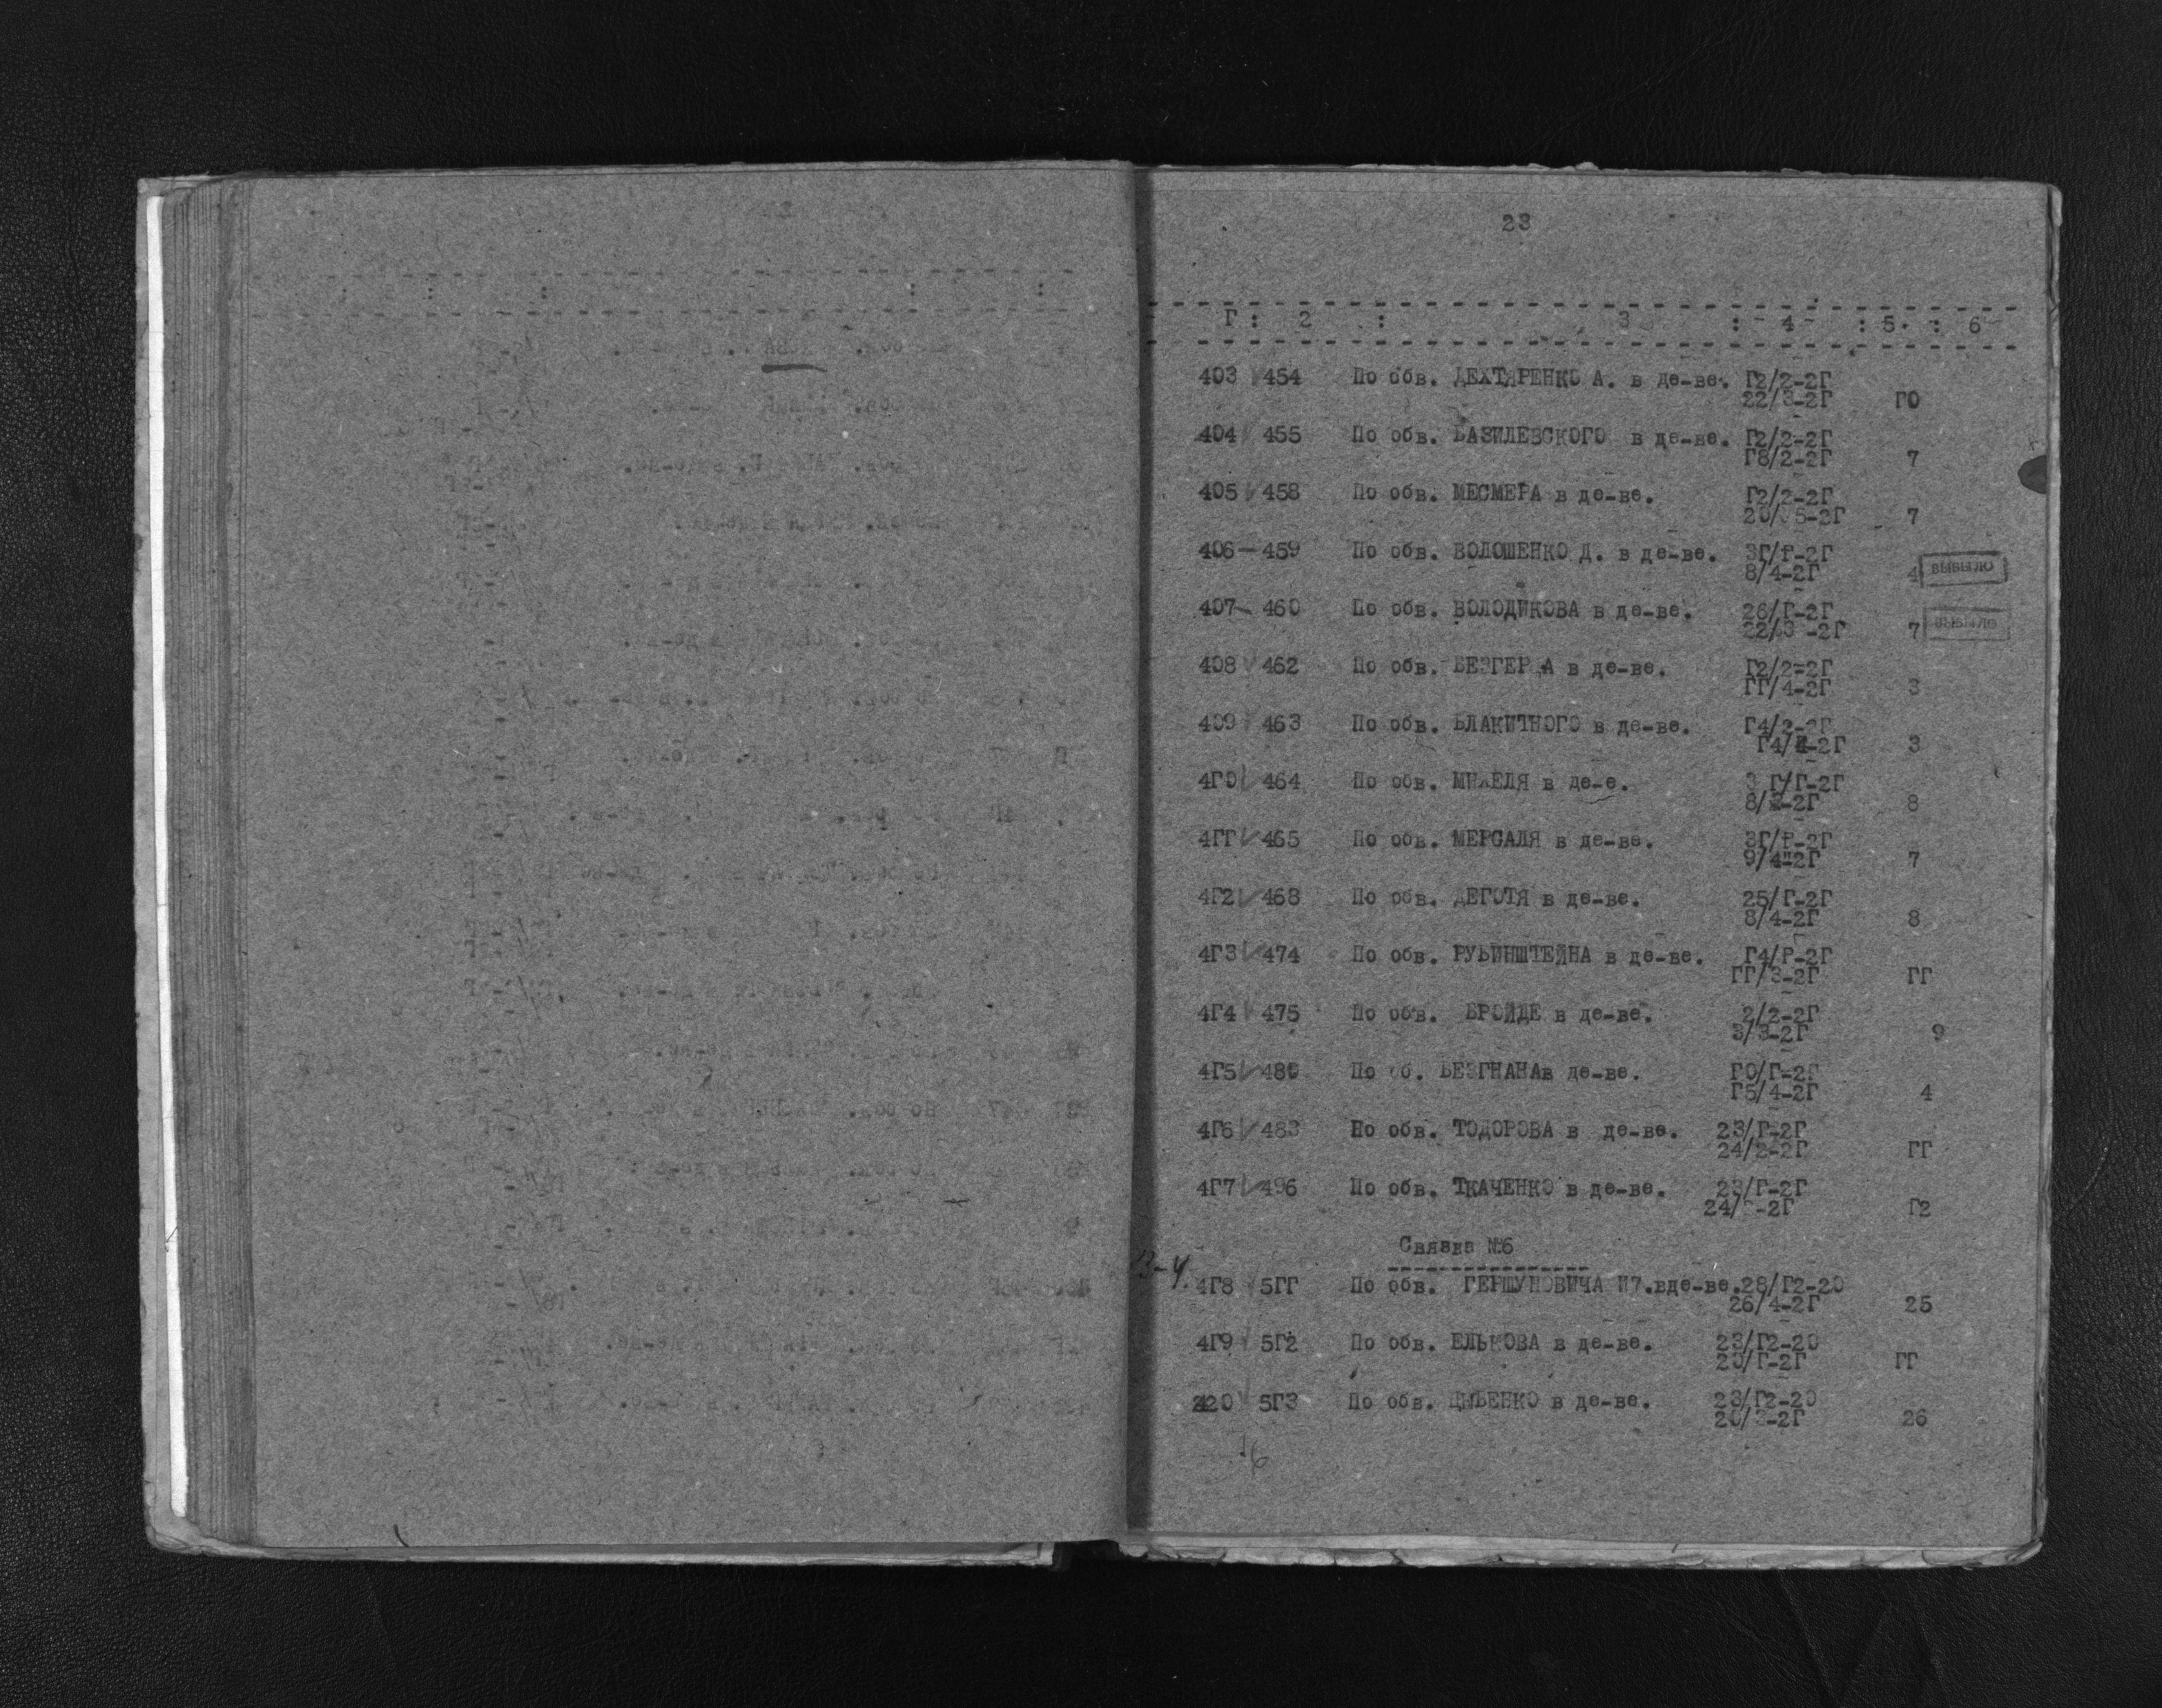 23
Г : 2 : 3 : 4 : 5 : 6
403 454 По обв. ДЕХТЯРЕНКО А. в де-ве. Г2/2-2Г
22/3-2Г ГО
404 455 По обв. БАЗИЛЕВСКОГО в де-ве. Г2/2-2Г
Г8/2-2Г 7
405 458 По обв. МЕСМЕРА в де-ве. Г2/2-2Г
7
406 - 459 По обв. ВОЛОШЕНКО Д. в де-ве. 3Г/Г-2Г
8/4-2Г 4 ВЫБЫЛО
407 - 460 По обв. ВОЛОДИКОВА в де-ве. 26/Г-2Г
22/3 -2Г 7 ВЫБЫЛО
408 462 По обв. в де-ве. Г2/2-2Г
ГГ/4-2Г 3
409 463 По обв. БЛАКИТНОГО в де-ве. Г4/2-2Г
Г4/4-2Г 3
4Г0 464 По обв. в де-е. 3 Г/Г-2Г
8
4ГГ 465 По обв. МЕРСАЛЯ в де-ве. 3Г/Г-2Г
9/4-2Г 7
4Г2 468 По обв. ДЕГОТЯ в де-ве. 25/Г-2Г
8/4-2Г 8
4Г3 474 По обв. РУБИНШТЕЙНА в де-ве. Г4/Г-2Г
ГГ/3-2Г ГГ
4Г4 475 По обв. БРОЙДЕ в де-ве. 2/2-2Г
3/3-2Г 9
4Г5 480 По об. БЕЗГНАНАв де-ве. ГО/Г-2Г
Г5/4-2Г 4
4Г6 483 По обв. ТОДОРОВА в де-ве. 23/Г-2Г
24/2-2Г ГГ
4Г7 496 По обв. ТКАЧЕНКО в де-ве. 23/Г-2Г
Г2
Связка №6
3-4.
4Г8 5ГГ По обв. ГЕРШУНОВИЧА И7.вде-ве.28/Г2-20
26/4-2Г 25
4Г9 5Г2 По обв. ЕЛЬКОВА в де-ве. 23/Г2-20
20/Г-2Г ГГ
420 5Г3 По обв. ЦЫБЕНКО в де-ве. 23/Г2-20
26
16